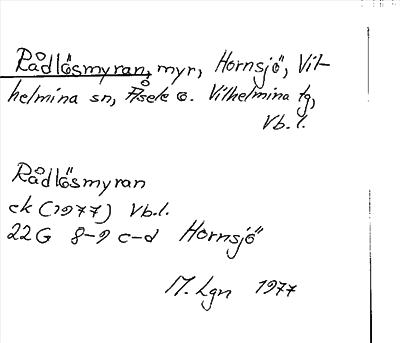 Rådlösmyran, myr, Hornsjö, Vil-
helmina sn, Åsele o. Vilhelmina tg,
Vb.l.
Rådlösmyran
ek (1977) Vb.l.
22G 8-9 c-d Hornsjö
M. Lgn 1977